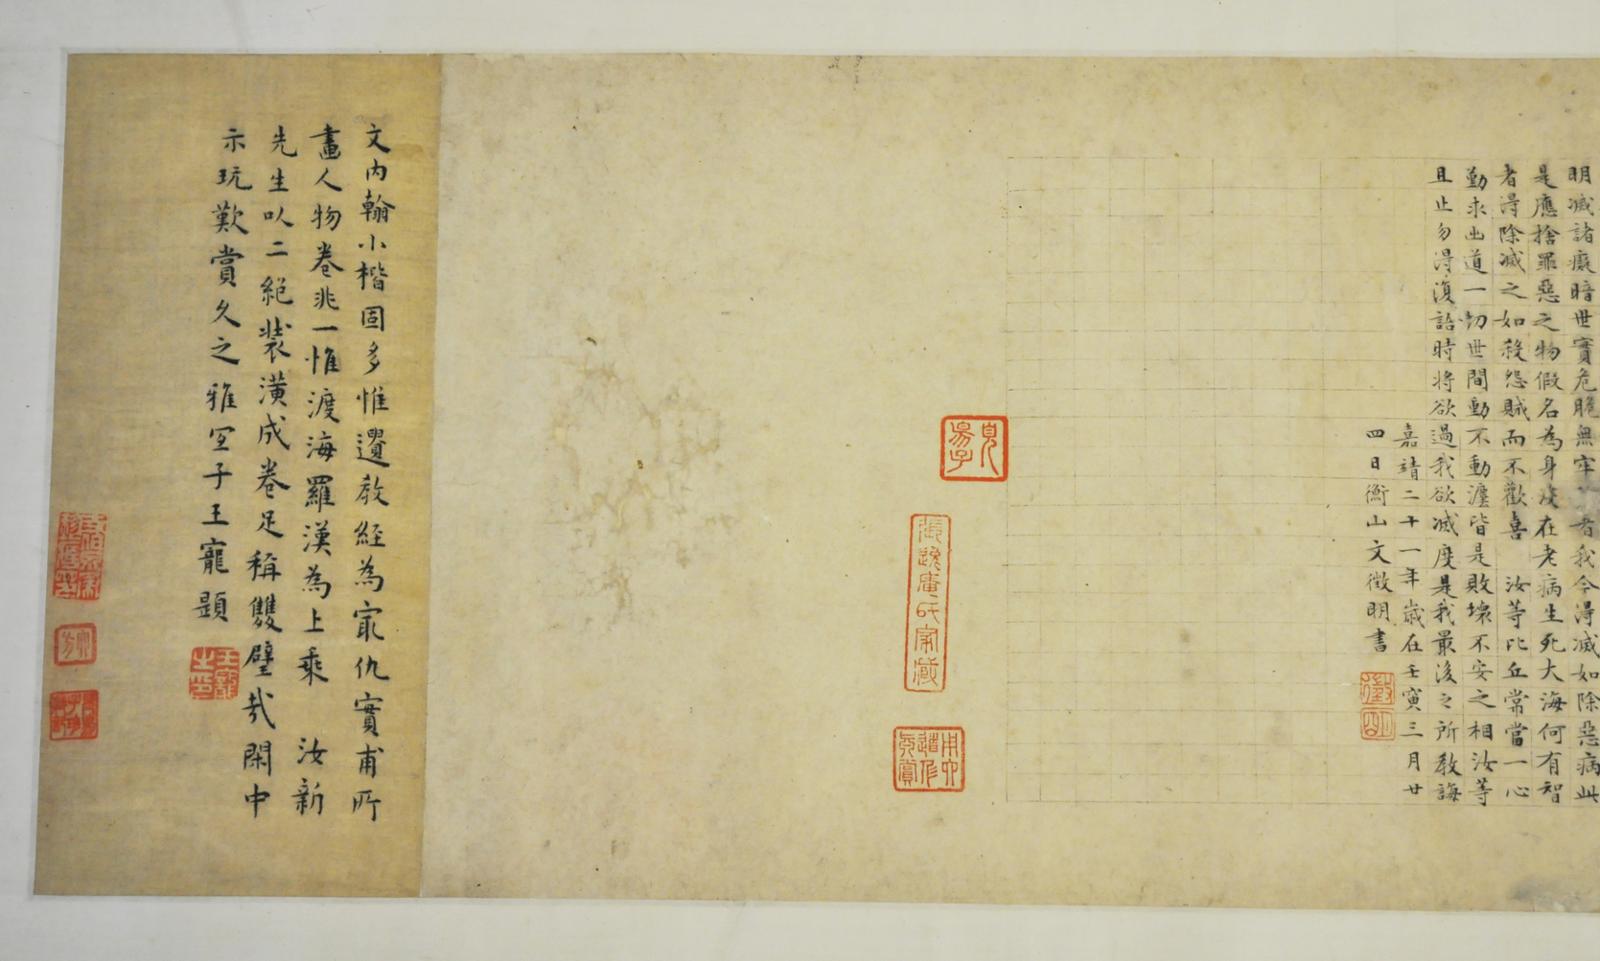 明滅諸癡暗世實危脆無牢者我今淂滅如除惡病此
是應捨罪惡之物假名為身没在老病生死大海何有智
者淂除滅之如殺怨賊而不歡喜 汝等比丘常當一心
勤求出道一切世間動不動灋皆是敗壞不安之相汝等
且止勿淂復語時將欲過我欲滅度是我最後之所教誨
嘉靖二十一年歲在壬寅三月廿
四日衡山文徵明書
徵明
文內翰小楷固多惟遺教經為最仇實甫所
畫人物卷非一惟渡海羅漢為上乘 汝新
先生以二絕裝潢成卷足稱雙璧哉閑中
示玩歎賞久之雅宜子王寵題
王寵之印